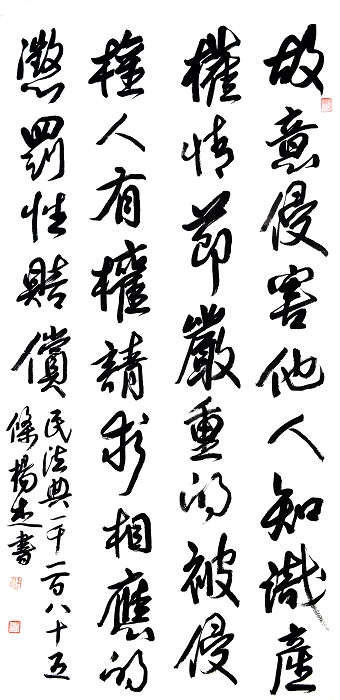 故意侵害他人知識產
權情節嚴重的被侵
權人有權請求相應的
懲罰性賠償
民法典一千一百八十五
條楊杰書